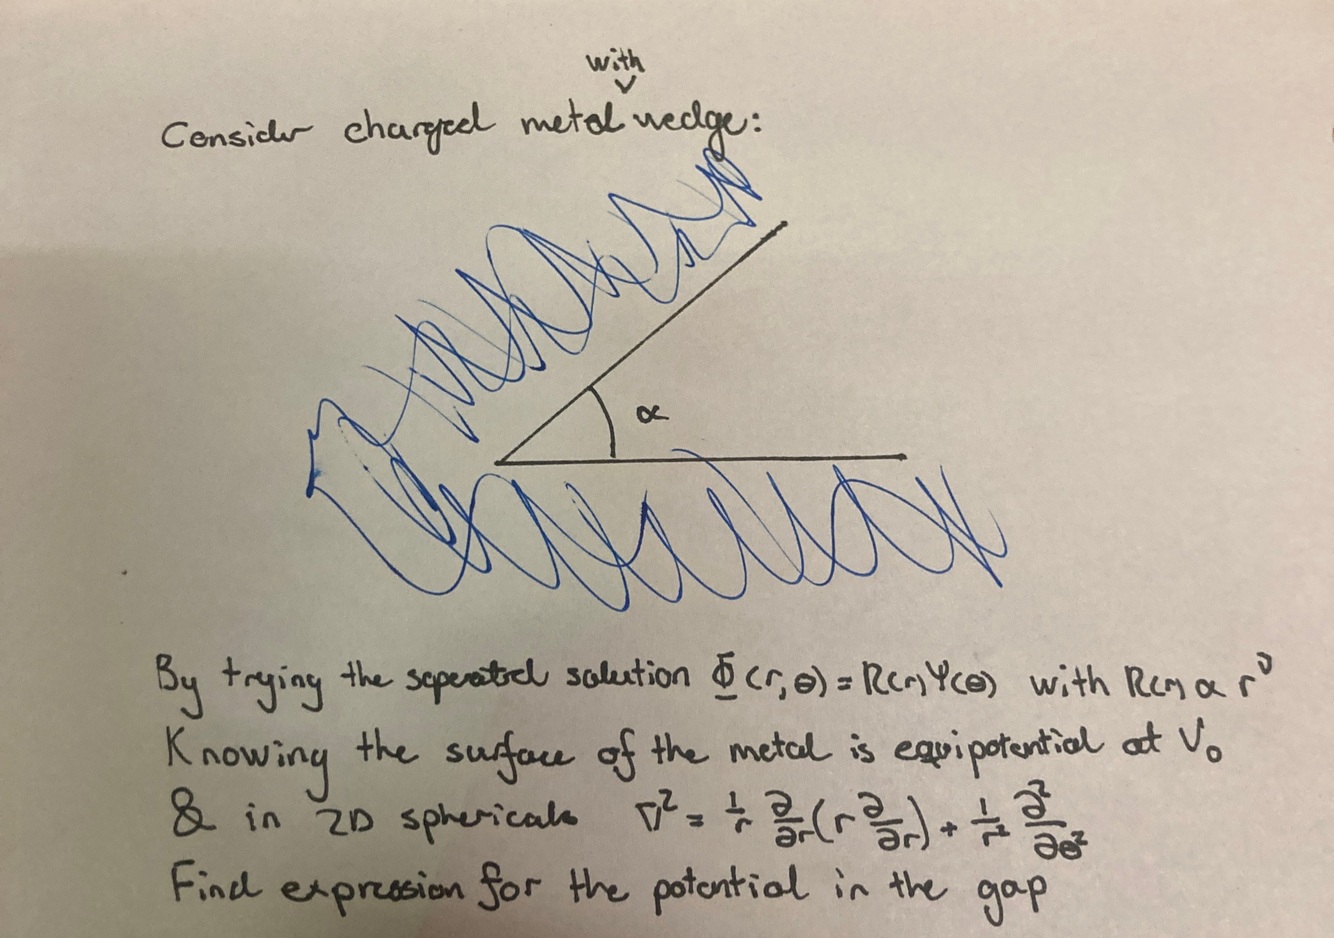 with
Consider charged metal wedge:
α
By trying the seperated solution Φ(r,θ) = R(r)Ψ(θ) with R(r) ∝ r^ν
Knowing the surface of the metal is equipotential at V₀
& in 2D sphericals ∇² = 1/r ∂/∂r (r ∂/∂r) + 1/r² ∂²/∂θ²
Find expression for the potential in the gap